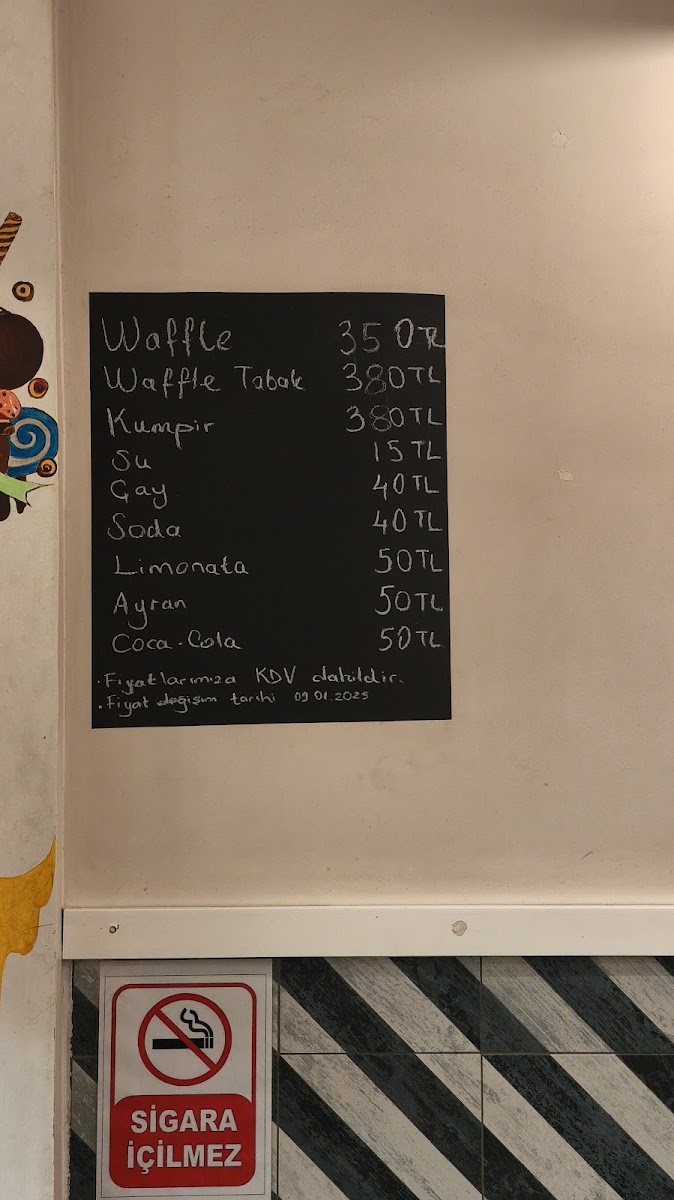 Waffle 350 TL
Waffle Tabak 380 TL
Kumpir 380 TL
Su 15 TL
Çay 40 TL
Soda 40 TL
Limonata 50 TL
Ayran 50 TL
Coca-Cola 50 TL
· Fiyatlarımıza KDV dahildir.
· Fiyat değişim tarihi 09.01.2025
SİGARA
İÇİLMEZ